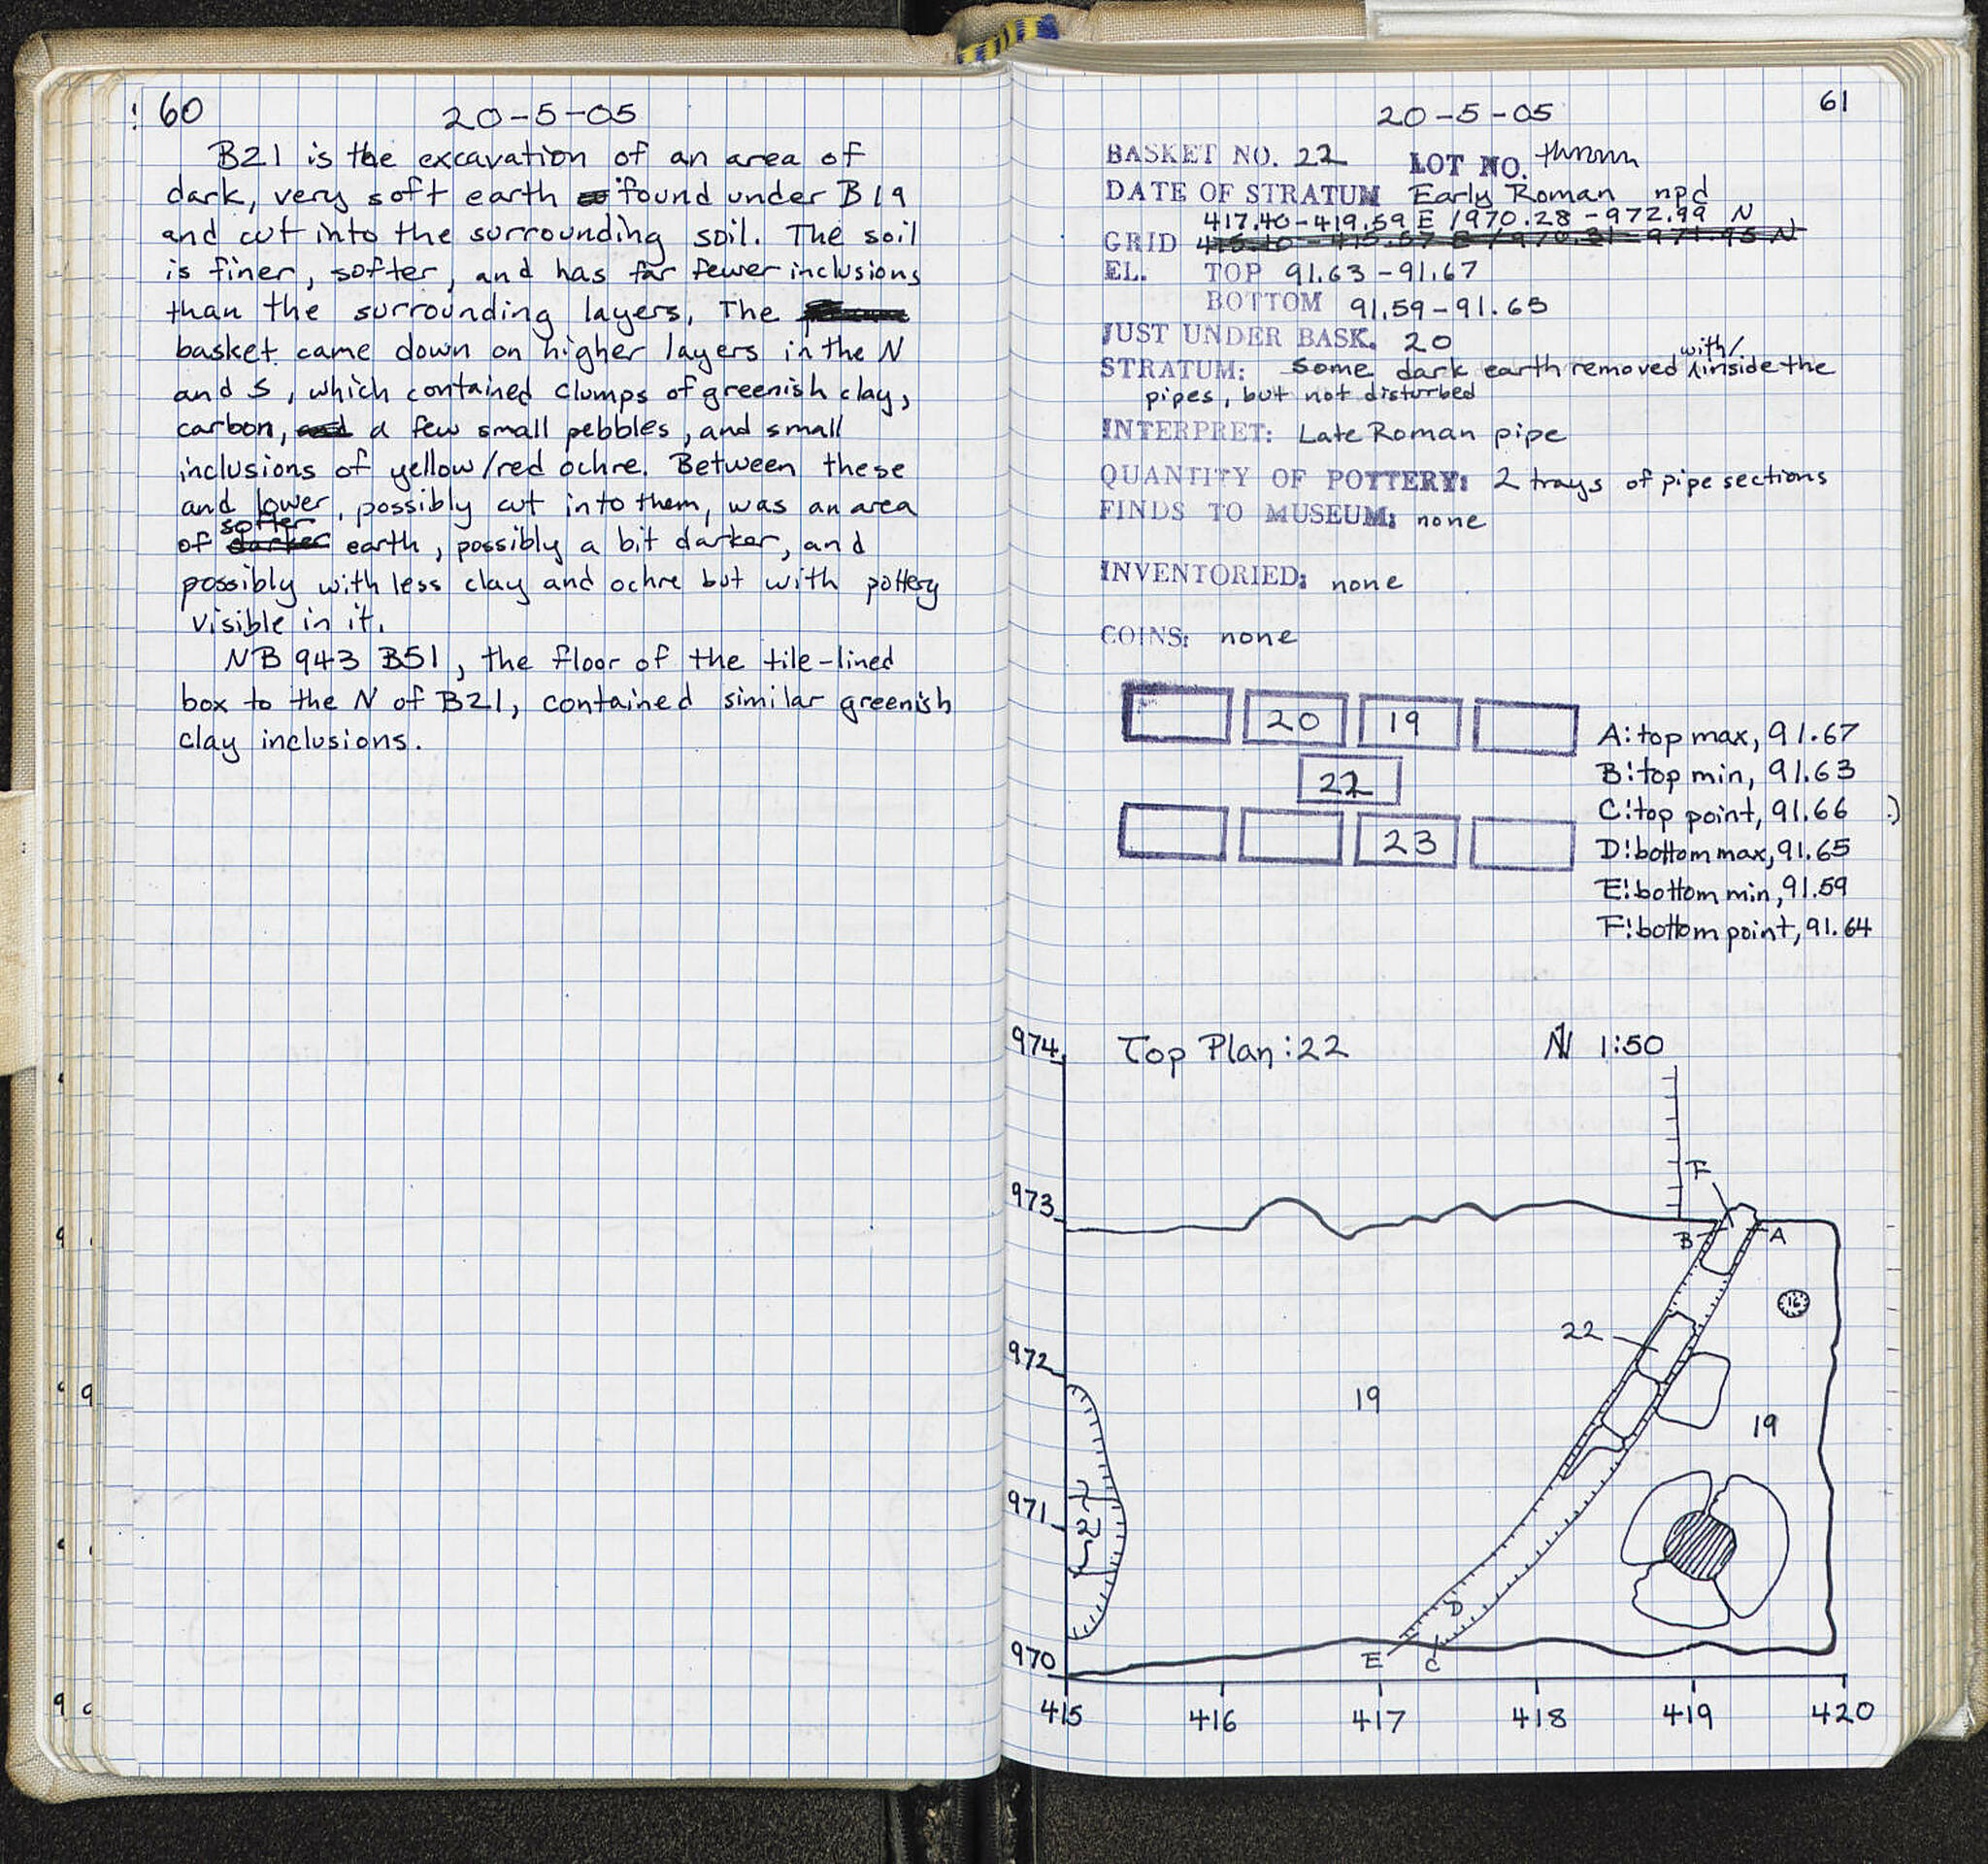 60
20-5-05
B21 is the excavation of an area of
dark, very soft earth found under B19
and cut into the surrounding soil. The soil
is finer, softer, and has far fewer inclusions
than the surrounding layers. The
basket came down on higher layers in the N
and S, which contained clumps of greenish clay,
carbon, and a few small pebbles, and small
inclusions of yellow/red ochre. Between these
and lower, possibly cut into them, was an area
softer
of darker earth, possibly a bit darker, and
possibly with less clay and ochre but with pottery
visible in it.
NB 943 B51, the floor of the tile-lined
box to the N of B21, contained similar greenish
clay inclusions.
61
20-5-05
BASKET NO. 22 LOT NO. thrown
DATE OF STRATUM Early Roman npd
417.40-419.59 E / 970.28-972.99 N
GRID
EL. TOP 91.63-91.67
BOTTOM 91.59-91.65
JUST UNDER BASK. 20
with/
STRATUM: Some dark earth removed inside the
pipes, but not disturbed
INTERPRET: Late Roman pipe
QUANTITY OF POTTERY: 2 trays of pipe sections
FINDS TO MUSEUM: none
INVENTORIED: none
COINS: none
20 19
22
23
A: top max, 91.67
B: top min, 91.63
C: top point, 91.66
D: bottom max, 91.65
E: bottom min, 91.59
F: bottom point, 91.64
Top Plan: 22 N 1:50
974
973
972
971
970
F
B A
16
22
19
19
21
D
E C
415 416 417 418 419 420